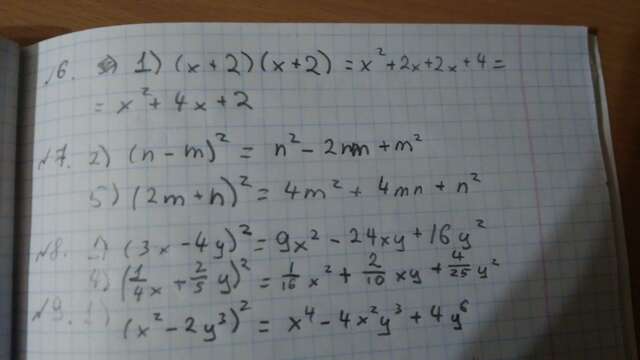 №6. 1) (x+2)(x+2) = x²+2x+2x+4=
= x²+4x+2
№7. 2) (n-m)² = n²-2nm+m²
5) (2m+n)² = 4m²+4mn+n²
№8. 2) (3x-4y)² = 9x²-24xy+16y²
4) (1/4x+2/5y)² = 1/16x²+2/10xy+4/25y²
№9. 1) (x²-2y³)² = x⁴-4x²y³+4y⁶